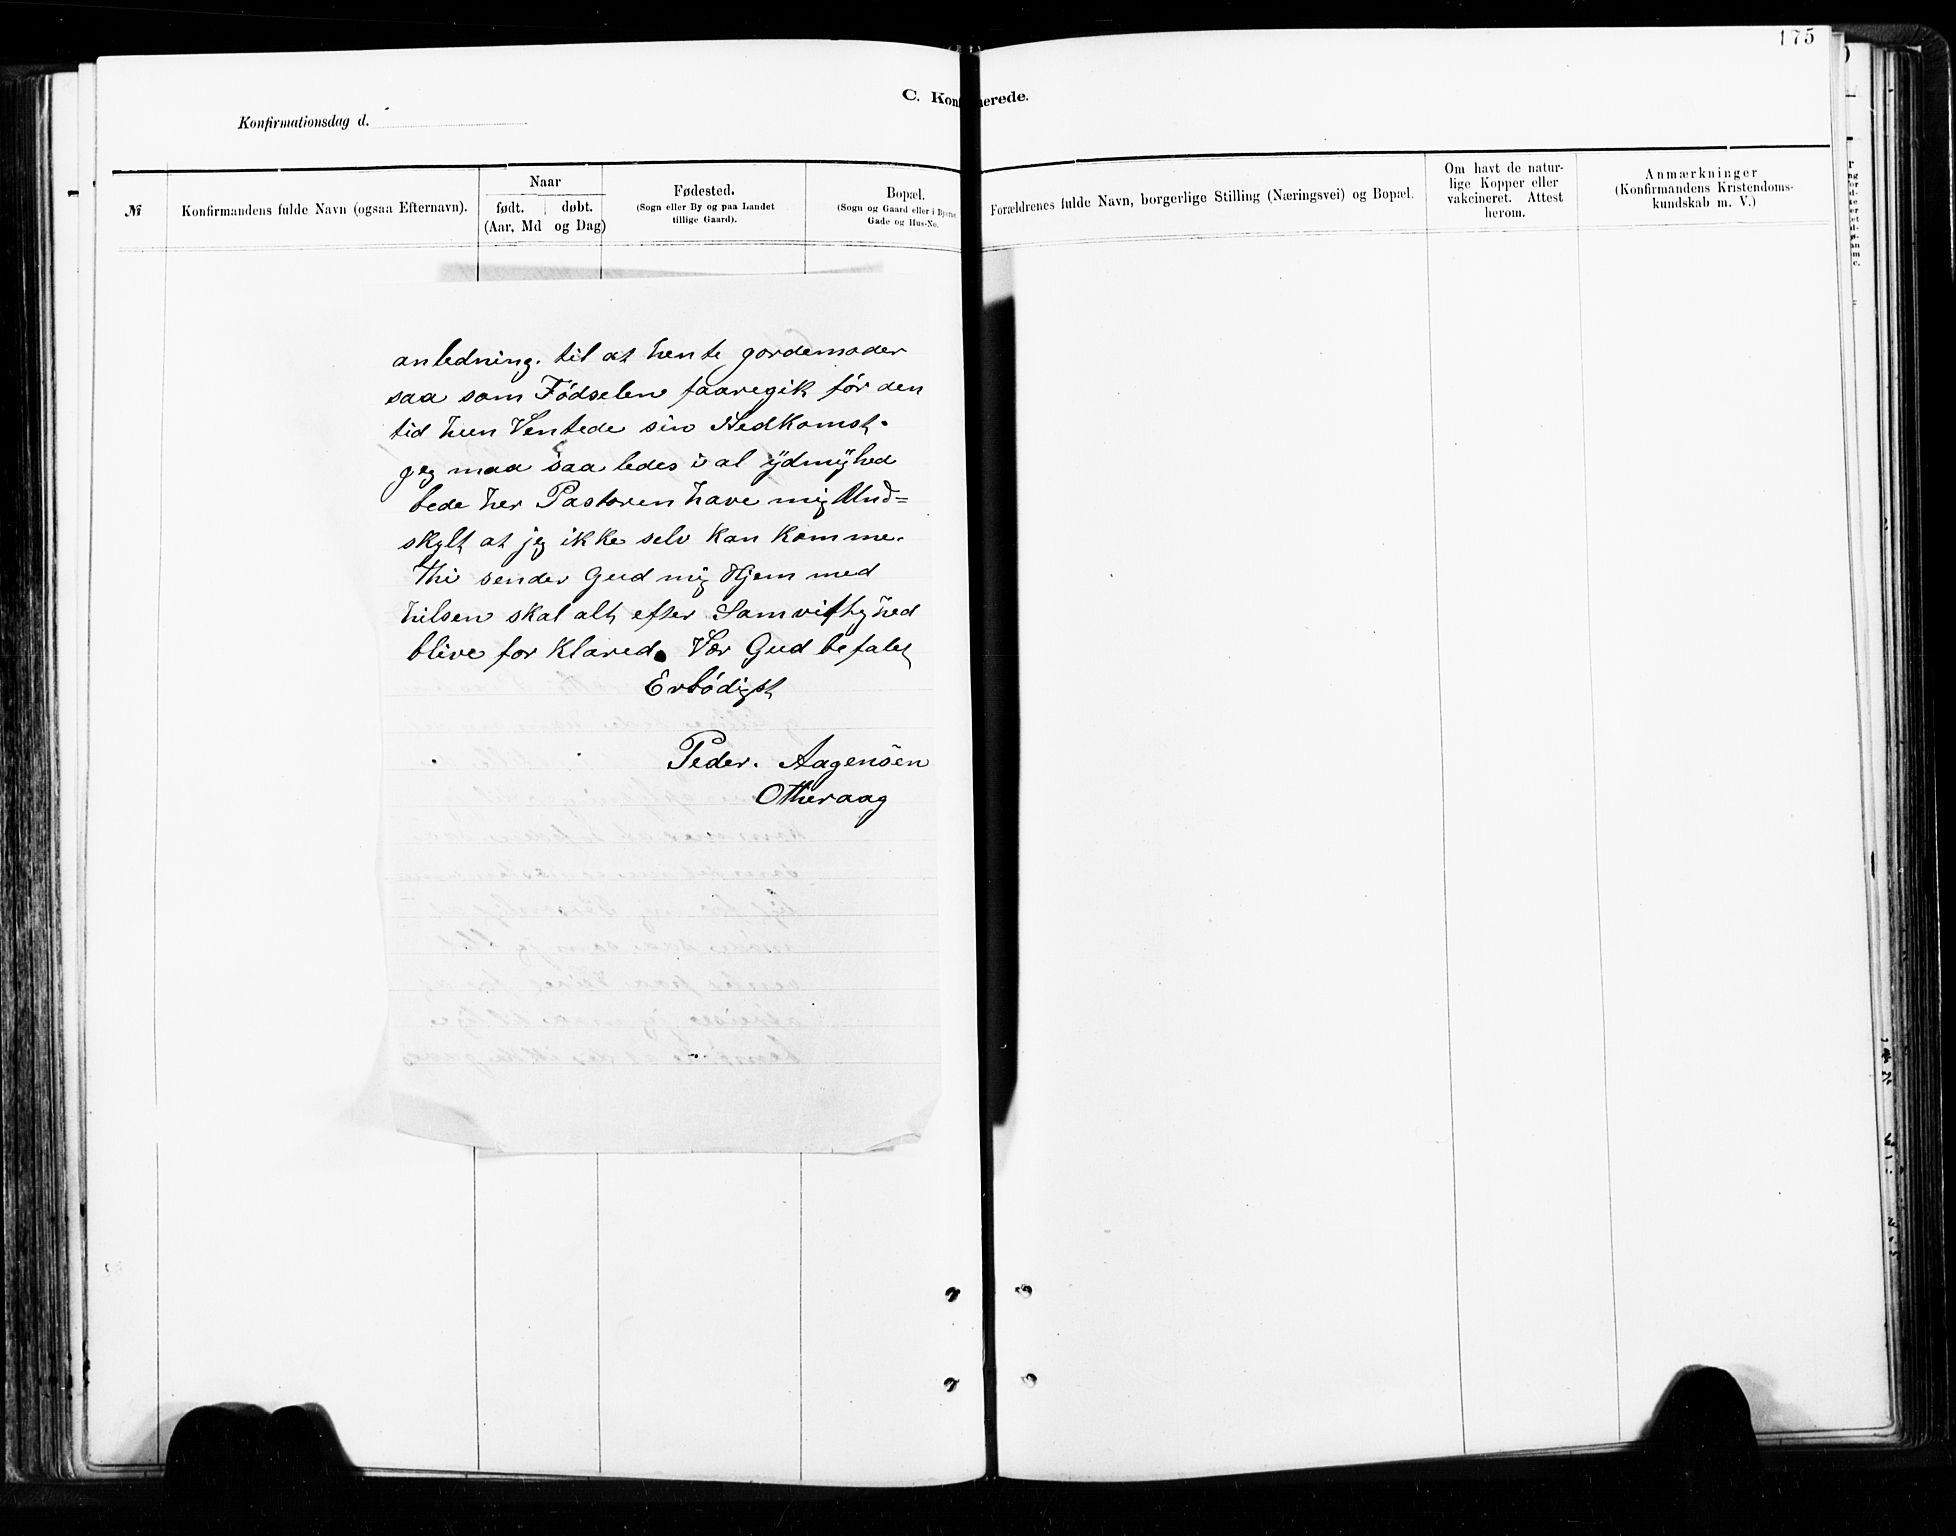 175
C. Konfirmerede.
Konfirmationsdag d.
№
Konfirmandens fulde Navn (ogsaa Efternavn).
Naar
født. døbt.
(Aar, Md og Dag)
Fødested.
(Sogn eller By og paa Landet
tillige Gaard).
Bopæl.
(Sogn og Gaard eller i Byerne
Gade og Hus-No.
Forældrenes fulde Navn, borgerlige Stilling (Næringsvei) og Bopæl.
Om havt de natur-
lige Kopper eller
vakcineret. Attest
herom.
Anmærkninger
(Konfirmandens Kristendoms-
kundskab m. V.)
anledning. til at hente gordemoder
saa som Fødselen faaregik før den
tid hun Ventede sin Nedkomst.
jeg maa saa ledes i al ydmyhed
bede her Pastoren have mig Und=
skylt at jeg ikke selv kan komme.
thi sender Gud mig Hjem med
hilsen skal alt efter Samvittyhed
blive for klared. Vær Gud befalet
Erbødigst
Peder. Aagensen
Otheraag